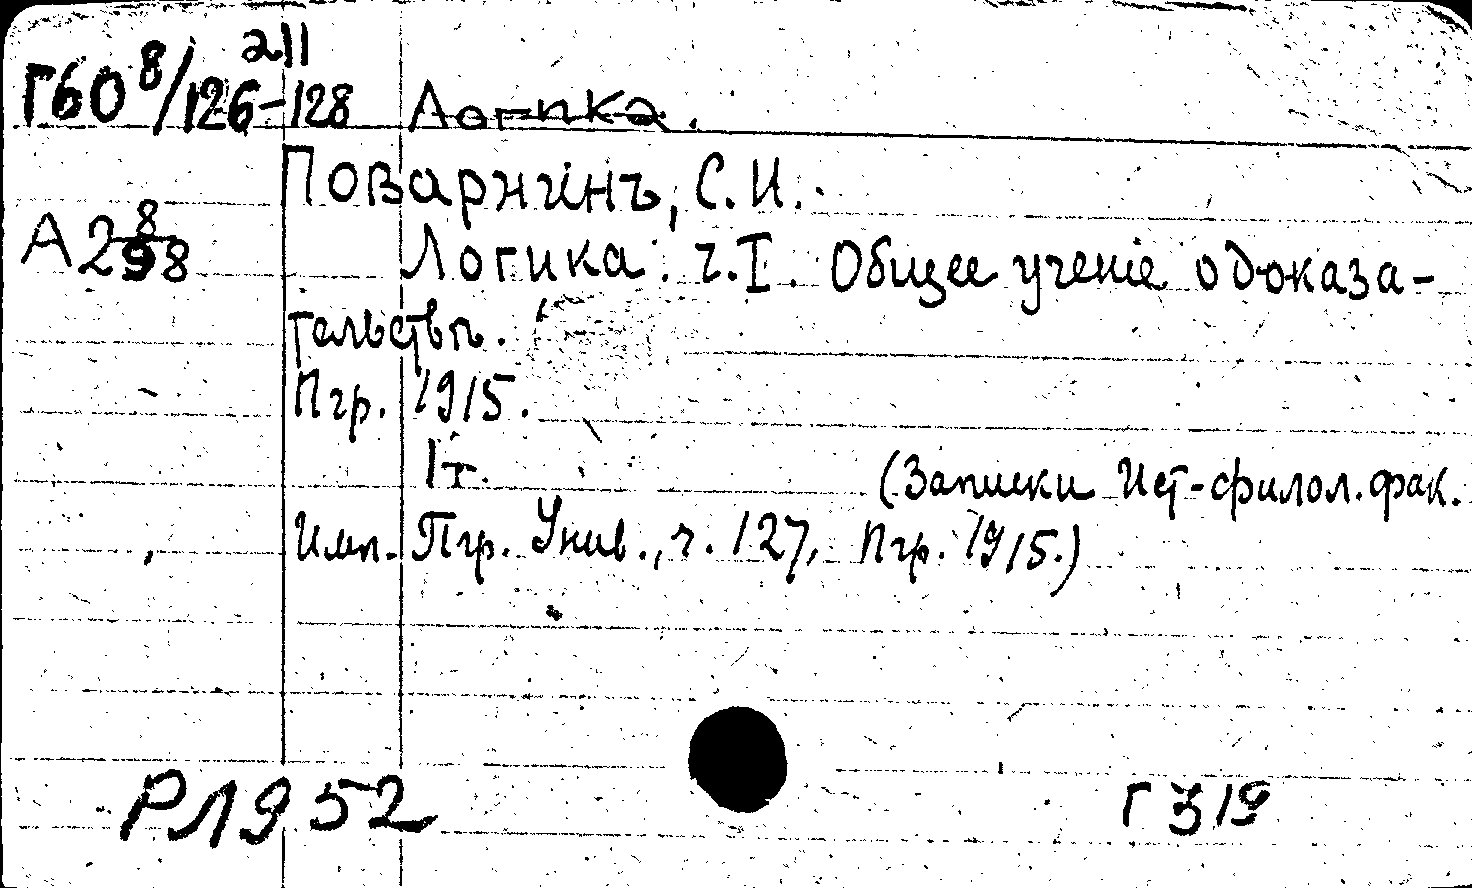 211
Г60 8/126-128 Логика.
Поварнинъ, С. И.
А2 8/98
Логика. ч. I. Общее ученіе о доказа-
тельствѣ.
Пгр. 1915.
1 т. (Записки Ист-филол. фак.
Имп. Пгр. Унив., ч. 127, Пгр. 1915.)
РЛ952 Г 319